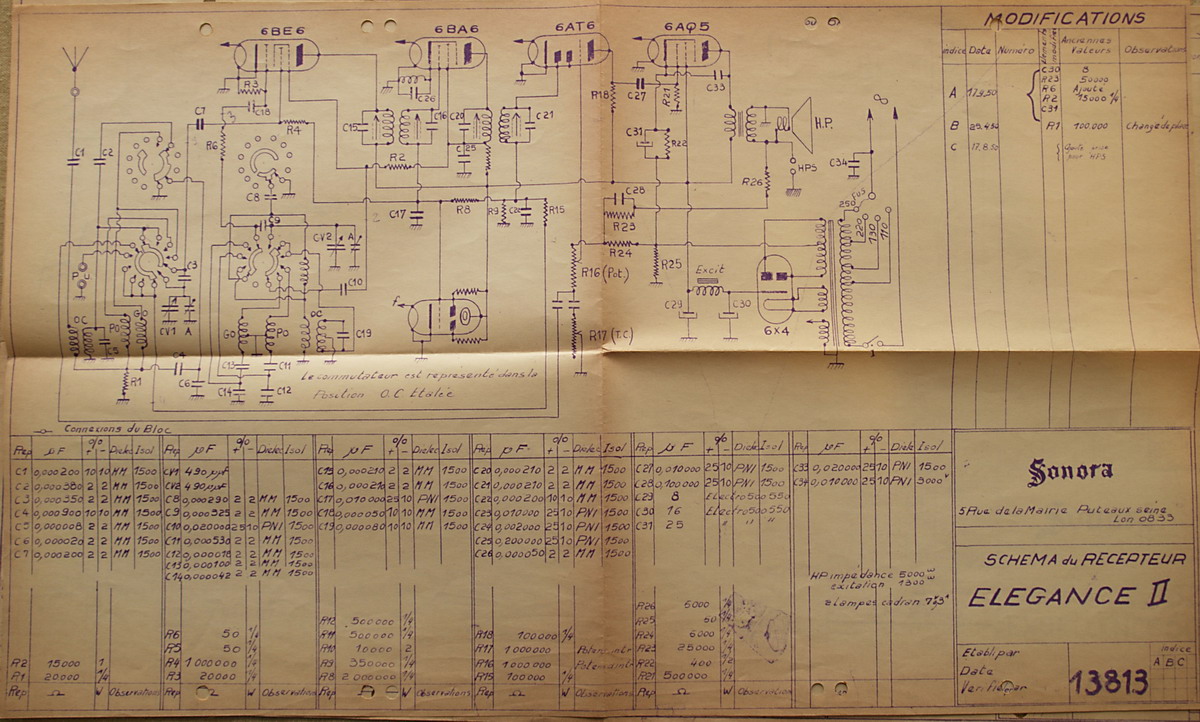 6BE6 6BA6 6AT6 6AQ5
MODIFICATIONS
Indice Date Numéro Eléments modifiés Anciennes Valeurs Observations
C30 8
R23 50000
A 17.9.50 R6 Ajoute
R2 15000 1/4
C31
B 29.4.50 R1 100.000
C 17.8.50
R3
C18
C7
R6
R4
C26
C15
C16
C20
C21
C25
R18
C27
R21
C33
C31
R22
H.P.
HPS
C34
R26
C1
C2
R2
C8
C9
C17
R8
R9
R15
C28
R23
R24
R25
R16 (Pot.)
R17 (T.C)
Excit
C29
C30
6X4
250
220
130
110
CV2
A
C10
C3
CV1
A
OC
PO
GO
GO
PO
OC
C19
C4
C6
R1
C13
C11
C14
C12
Le commutateur est representé dans la
Position O.C Etalée
Connexions du Bloc
Rep µF % + - Dielec Isol Rep µF % + - Dielec Isol Rep µF % + - Dielec Isol Rep µF % + - Dielec Isol Rep µF % + - Dielec Isol Rep µF % + - Dielec Isol
C1 0,000200 10 10 MM 1500 CV1 490µµF C15 0,000210 2 2 MM 1500 C20 0,000210 2 2 MM 1500 C27 0,010000 25 10 PNI 1500 C33 0,020000 25 10 PNI 1500
C2 0,000380 2 2 MM 1500 CV2 490µµF C16 0,000210 2 2 MM 1500 C21 0,000210 2 2 MM 1500 C28 0,100000 25 10 PNI 1500 C34 0,010000 25 10 PNI 3000
C3 0,000350 2 2 MM 1500 C8 0,000290 2 2 MM 1500 C17 0,010000 25 10 PNI 1500 C22 0,000200 10 10 MM 1500 C29 8 Electro 500 550
C4 0,000900 10 10 MM 1500 C9 0,000325 2 2 MM 1500 C18 0,000050 10 10 MM 1500 C23 0,010000 25 10 PNI 1500 C30 16 Electro 500 550
C5 0,000008 2 2 MM 1500 C10 0,020000 25 10 PNI 1500 C19 0,000080 10 10 MM 1500 C24 0,002000 25 10 PNI 1500 C31 25 " "
C6 0,000020 2 2 MM 1500 C11 0,000530 2 2 MM 1500 C25 0,200000 25 10 PNI 1500
C7 0,000200 2 2 MM 1500 C12 0,000018 2 2 MM 1500 C26 0,000050 2 2 MM 1500
C13 0,000100 2 2 MM 1500
C14 0,000042 2 2 MM 1500
HP impédance 5000
exitation 1800
2 Lampes cadran
R26 6000
R12 500000 R25 50
R6 50 1/4 R11 500000 1/4 R18 100000 1/4 R24 6000
R5 50 1/4 R10 10000 2 R17 1.000000 Potent. int R23 25000
R2 15000 1 R4 1.000000 1/4 R9 350000 1/4 R16 1.000000 Potent. int R22 400
R1 20000 R3 20000 1/4 R8 2.000000 1/4 R15 100000 1/4 R21 500000
Rep Ω W Observations Rep Ω W Observations Rep Ω W Observations Rep Ω W Observations Rep Ω W Observations Rep Ω W Observations
Sonora
5 Rue de la Mairie Puteaux seine
Lon 08 33
SCHEMA du RÉCEPTEUR
ELEGANCE II
Etabli par
Date
Vérifié par
13813
indice
A B C